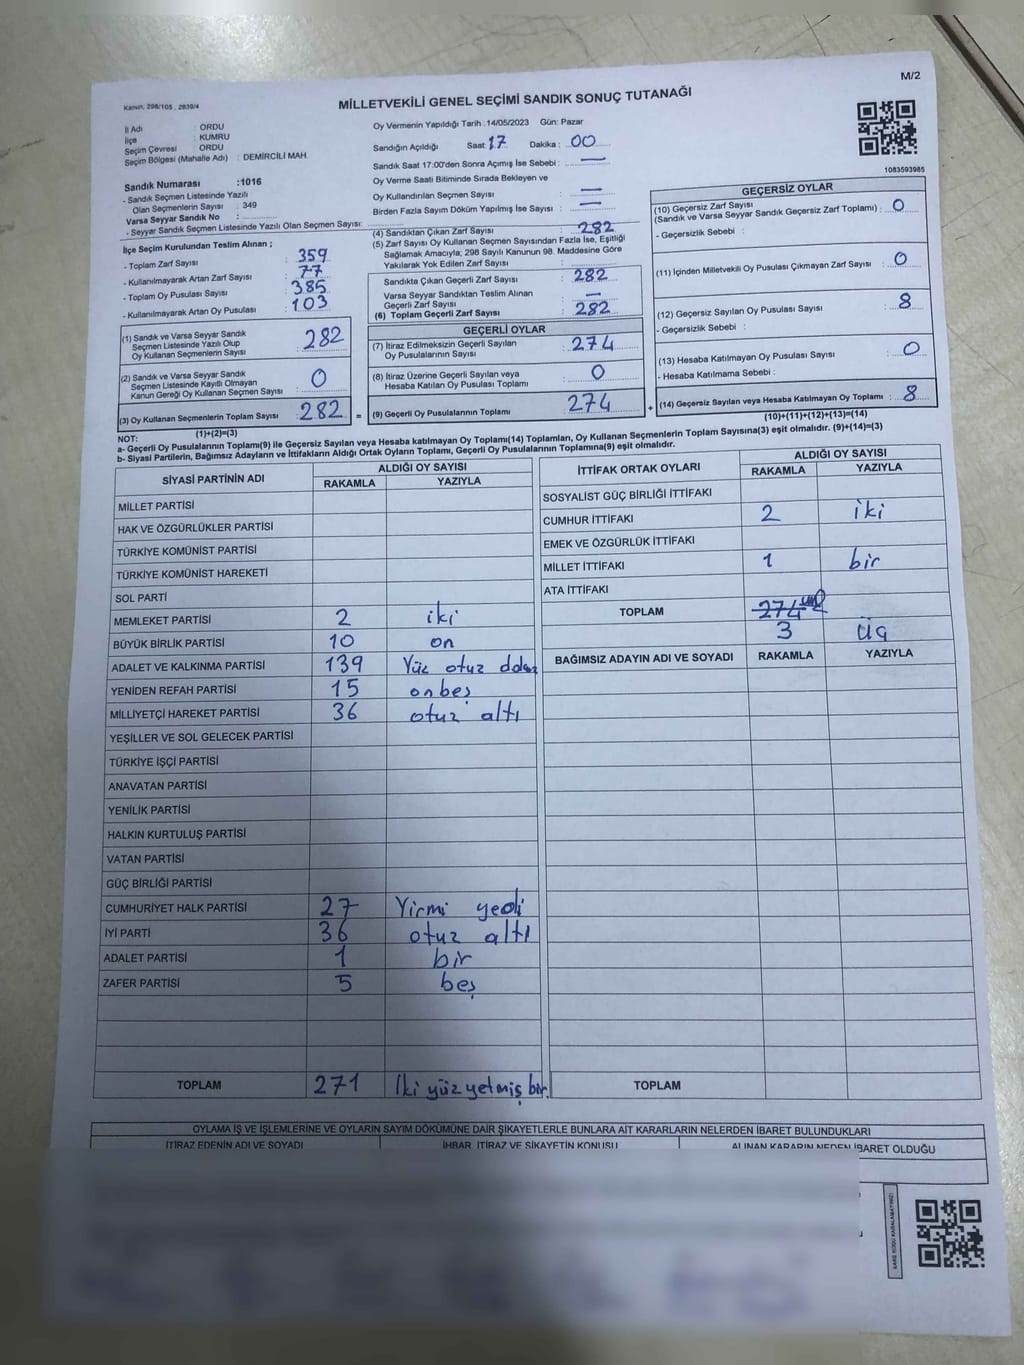 M/2
Kanun, 298/105 , 2839/4
MİLLETVEKİLİ GENEL SEÇİMİ SANDIK SONUÇ TUTANAĞI
İl Adı : ORDU
İlçe : KUMRU
Seçim Çevresi : ORDU
Seçim Bölgesi (Mahalle Adı) : DEMİRCİLİ MAH.
Sandık Numarası :1016
- Sandık Seçmen Listesinde Yazılı
Olan Seçmenlerin Sayısı : 349
Varsa Seyyar Sandık No :
- Seyyar Sandık Seçmen Listesinde Yazılı Olan Seçmen Sayısı:
İlçe Seçim Kurulundan Teslim Alınan ;
- Toplam Zarf Sayısı : 359
- Kullanılmayarak Artan Zarf Sayısı : 77
- Toplam Oy Pusulası Sayısı : 385
- Kullanılmayarak Artan Oy Pusulası : 103
(1) Sandık ve Varsa Seyyar Sandık
Seçmen Listesinde Yazılı Olup
Oy Kullanan Seçmenlerin Sayısı : 282
(2) Sandık ve Varsa Seyyar Sandık
Seçmen Listesinde Kayıtlı Olmayan
Kanun Gereği Oy Kullanan Seçmen Sayısı : 0
(3) Oy Kullanan Seçmenlerin Toplam Sayısı : 282 =
(1)+(2)=(3)
Oy Vermenin Yapıldığı Tarih :14/05/2023 Gün: Pazar
Sandığın Açıldığı Saat: 17 Dakika: 00
Sandık Saat 17:00'den Sonra Açılmış İse Sebebi : —
Oy Verme Saati Bitiminde Sırada Bekleyen ve
Oy Kullandırılan Seçmen Sayısı : —
Birden Fazla Sayım Döküm Yapılmış İse Sayısı : —
(4) Sandıktan Çıkan Zarf Sayısı : 282
(5) Zarf Sayısı Oy Kullanan Seçmen Sayısından Fazla İse, Eşitliği
Sağlamak Amacıyla; 298 Sayılı Kanunun 98. Maddesine Göre
Yakılarak Yok Edilen Zarf Sayısı :
Sandıkta Çıkan Geçerli Zarf Sayısı : 282
Varsa Seyyar Sandıktan Teslim Alınan
Geçerli Zarf Sayısı : —
(6) Toplam Geçerli Zarf Sayısı : 282
GEÇERLİ OYLAR
(7) İtiraz Edilmeksizin Geçerli Sayılan
Oy Pusulalarının Sayısı : 274
(8) İtiraz Üzerine Geçerli Sayılan veya
Hesaba Katılan Oy Pusulası Toplamı : 0
(9) Geçerli Oy Pusulalarının Toplamı : 274 +
1083593985
GEÇERSİZ OYLAR
(10) Geçersiz Zarf Sayısı
(Sandık ve Varsa Seyyar Sandık Geçersiz Zarf Toplamı) : 0
- Geçersizlik Sebebi :
(11) İçinden Milletvekili Oy Pusulası Çıkmayan Zarf Sayısı : 0
(12) Geçersiz Sayılan Oy Pusulası Sayısı : 8
- Geçersizlik Sebebi :
(13) Hesaba Katılmayan Oy Pusulası Sayısı : 0
- Hesaba Katılmama Sebebi :
(14) Geçersiz Sayılan veya Hesaba Katılmayan Oy Toplamı : 8
(10)+(11)+(12)+(13)=(14)
NOT:
a- Geçerli Oy Pusulalarının Toplamı(9) ile Geçersiz Sayılan veya Hesaba katılmayan Oy Toplamı(14) Toplamları, Oy Kullanan Seçmenlerin Toplam Sayısına(3) eşit olmalıdır. (9)+(14)=(3)
b- Siyasi Partilerin, Bağımsız Adayların ve İttifakların Aldığı Ortak Oyların Toplamı, Geçerli Oy Pusulalarının Toplamına(9) eşit olmalıdır.
SİYASİ PARTİNİN ADI ALDIĞI OY SAYISI
RAKAMLA YAZIYLA
MİLLET PARTİSİ
HAK VE ÖZGÜRLÜKLER PARTİSİ
TÜRKİYE KOMÜNİST PARTİSİ
TÜRKİYE KOMÜNİST HAREKETİ
SOL PARTİ
MEMLEKET PARTİSİ 2 iki
BÜYÜK BİRLİK PARTİSİ 10 on
ADALET VE KALKINMA PARTİSİ 139 Yüz otuz dokuz
YENİDEN REFAH PARTİSİ 15 onbeş
MİLLİYETÇİ HAREKET PARTİSİ 36 otuz altı
YEŞİLLER VE SOL GELECEK PARTİSİ
TÜRKİYE İŞÇİ PARTİSİ
ANAVATAN PARTİSİ
YENİLİK PARTİSİ
HALKIN KURTULUŞ PARTİSİ
VATAN PARTİSİ
GÜÇ BİRLİĞİ PARTİSİ
CUMHURİYET HALK PARTİSİ 27 Yirmi yedi
İYİ PARTİ 36 otuz altı
ADALET PARTİSİ 1 bir
ZAFER PARTİSİ 5 beş
TOPLAM 271 İki yüz yetmiş bir
İTTİFAK ORTAK OYLARI ALDIĞI OY SAYISI
RAKAMLA YAZIYLA
SOSYALİST GÜÇ BİRLİĞİ İTTİFAKI
CUMHUR İTTİFAKI 2 iki
EMEK VE ÖZGÜRLÜK İTTİFAKI
MİLLET İTTİFAKI 1 bir
ATA İTTİFAKI
TOPLAM 274
3 üç
BAĞIMSIZ ADAYIN ADI VE SOYADI RAKAMLA YAZIYLA
TOPLAM
OYLAMA İŞ VE İŞLEMLERİNE VE OYLARIN SAYIM DÖKÜMÜNE DAİR ŞİKAYETLERLE BUNLARA AİT KARARLARIN NELERDEN İBARET BULUNDUKLARI
İTİRAZ EDENİN ADI VE SOYADI İHBAR, İTİRAZ VE ŞİKAYETİN KONUSU ALINAN KARARIN NEDEN İBARET OLDUĞU